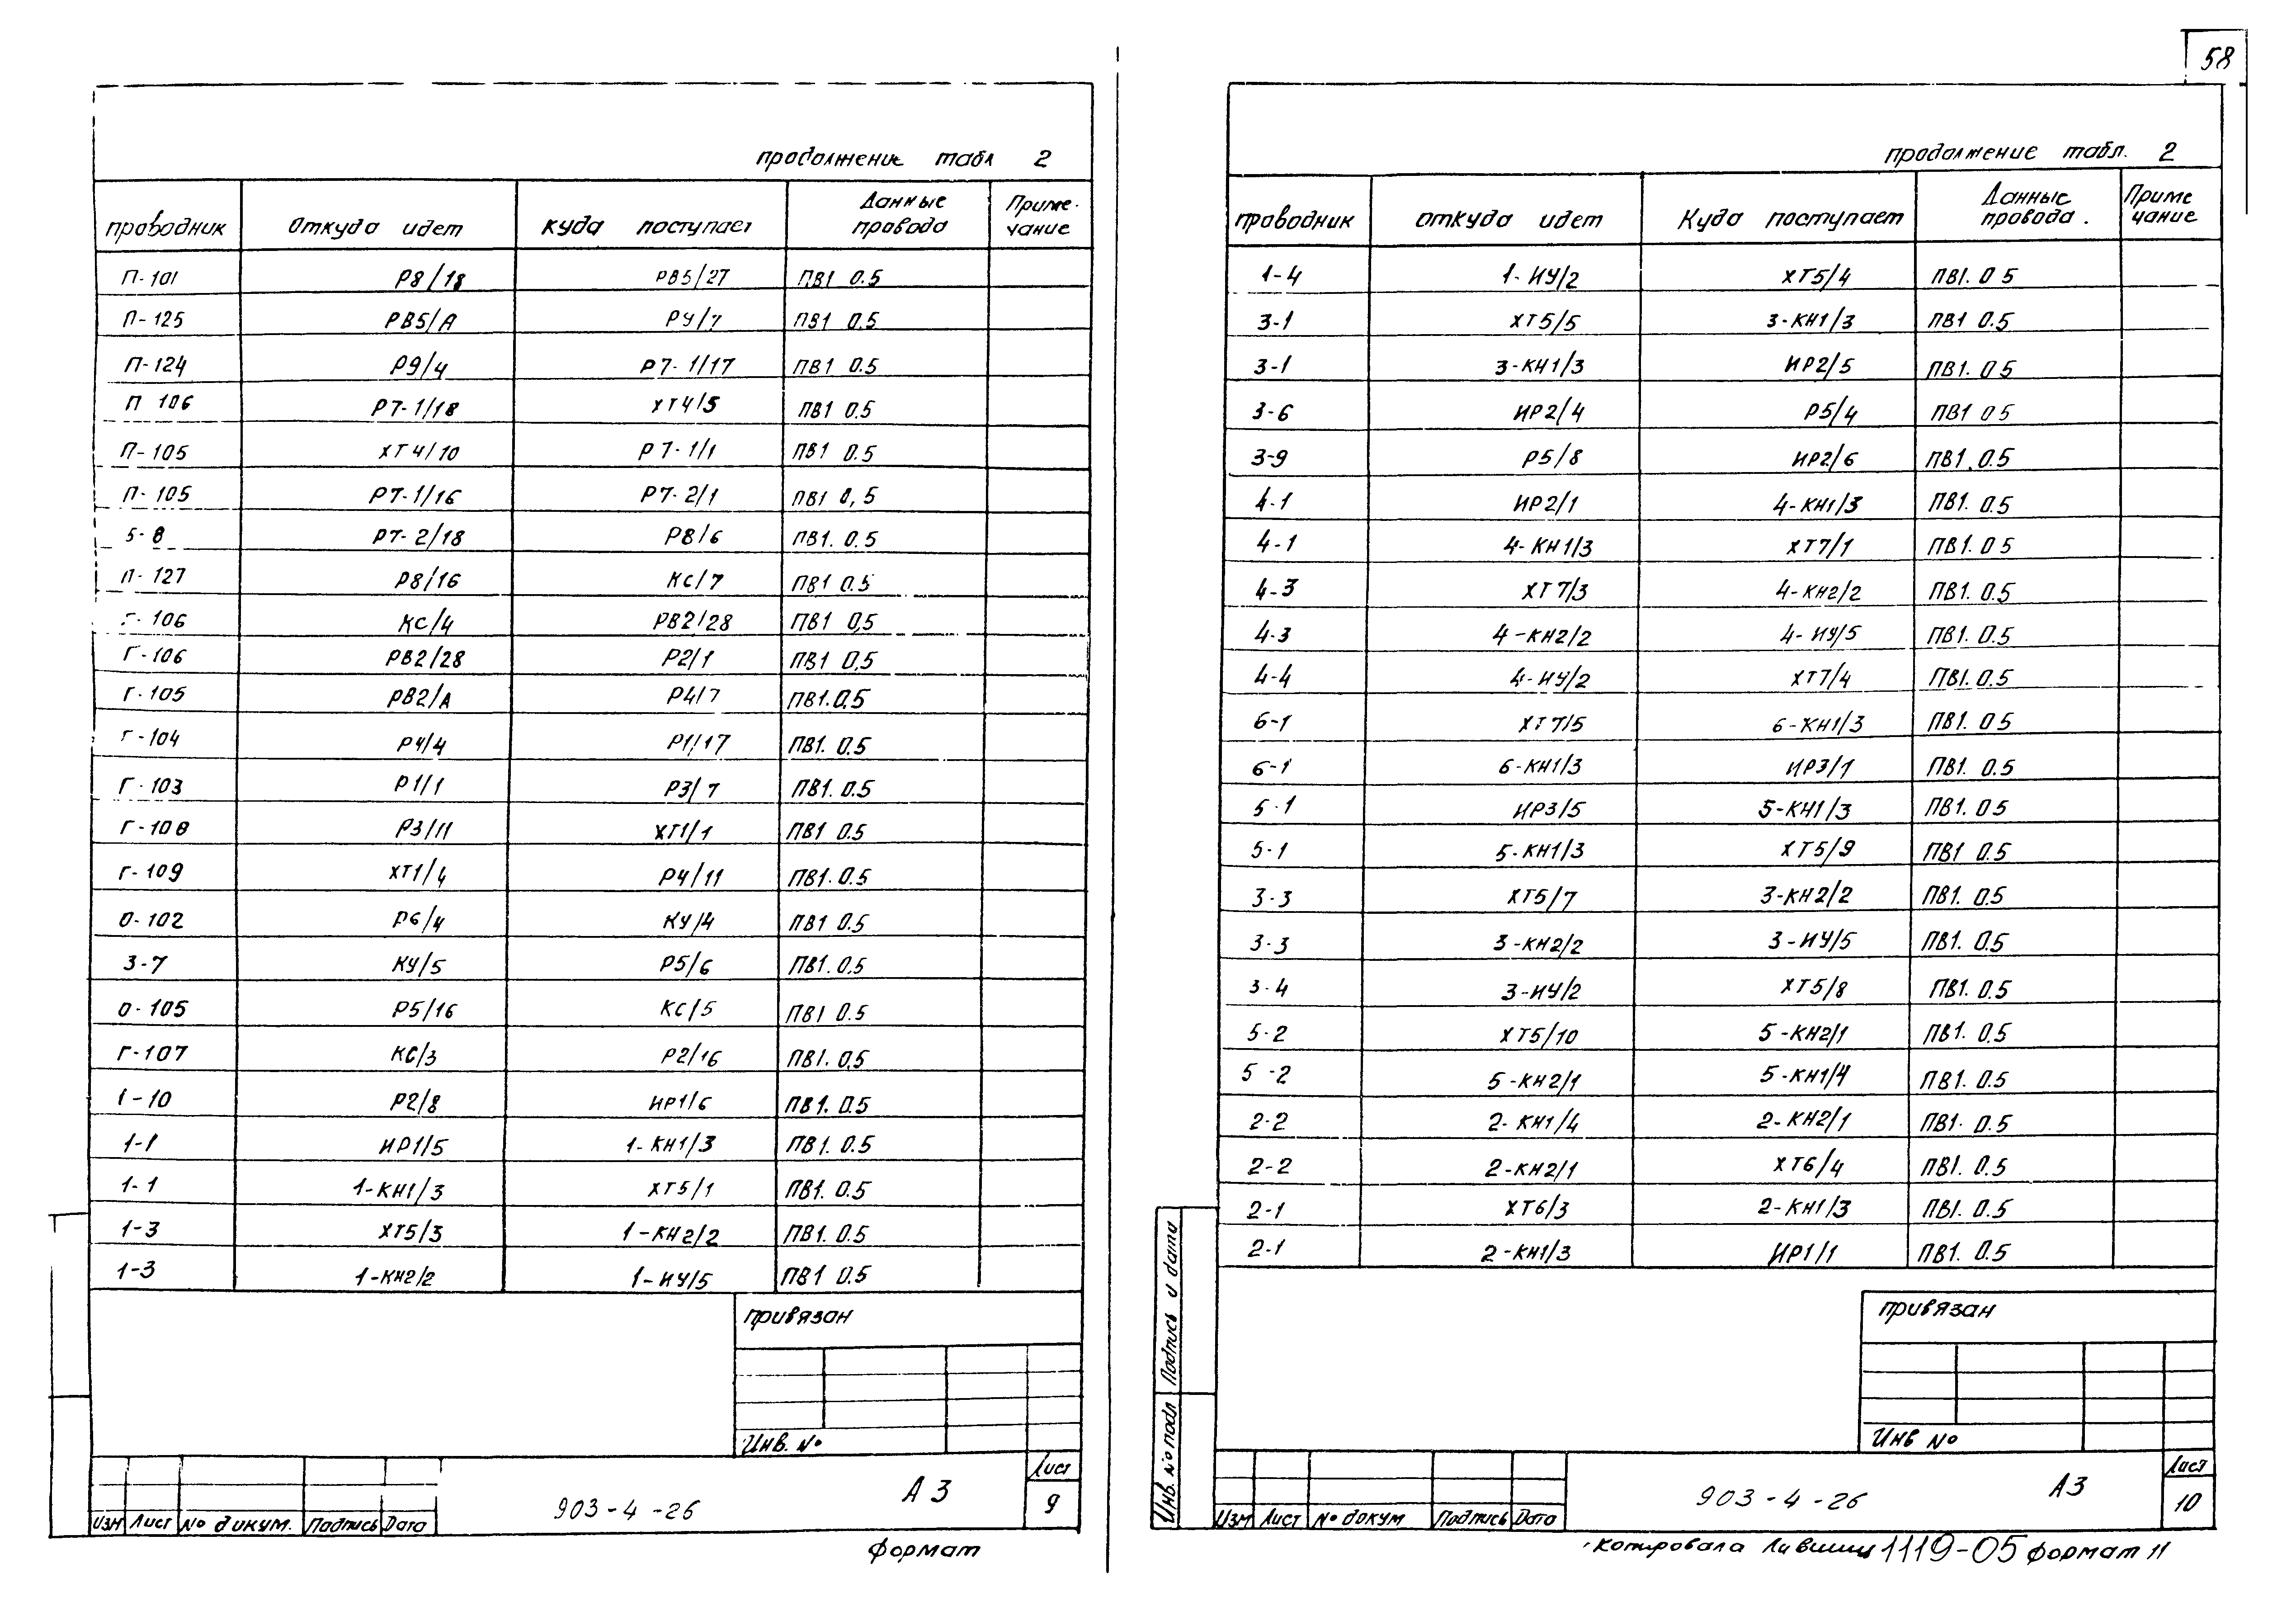 58
продолжение табл 2
проводник Откуда идет куда поступает Данные провода Приме-чание
П-101 Р8/18 РВ5/27 ПВ1 0.5
П-125 РВ5/А Р9/7 ПВ1 0.5
П-124 Р9/4 Р7-1/17 ПВ1 0.5
П 106 Р7-1/18 ХТ4/5 ПВ1 0.5
П-105 ХТ4/10 Р7-1/1 ПВ1 0.5
П-105 Р7-1/16 Р7-2/1 ПВ1 0,5
5-8 Р7-2/18 Р8/6 ПВ1. 0.5
П-127 Р8/16 КС/7 ПВ1 0.5
Г-106 КС/4 РВ2/28 ПВ1 0,5
Г-106 РВ2/28 Р2/1 ПВ1 0,5
Г-105 РВ2/А Р4/7 ПВ1.0,5
Г-104 Р4/4 Р1/17 ПВ1. 0.5
Г-103 Р1/1 Р3/7 ПВ1. 0.5
Г-108 Р3/11 ХТ1/1 ПВ1 0.5
Г-109 ХТ1/4 Р4/11 ПВ1. 0.5
0-102 Р6/4 КУ/4 ПВ1 0.5
3-7 КУ/5 Р5/6 ПВ1. 0.5
0-105 Р5/16 КС/5 ПВ1 0.5
Г-107 КС/3 Р2/16 ПВ1. 0,5
1-10 Р2/8 ИР1/6 ПВ1. 0.5
1-1 ИР1/5 1-КН1/3 ПВ1. 0.5
1-1 1-КН1/3 ХТ5/1 ПВ1. 0.5
1-3 ХТ5/3 1-КН2/2 ПВ1. 0.5
1-3 1-КН2/2 1-ИУ/5 ПВ1 0.5
привязан
Инв. №
Изм Лист № докум. Подпись Дата
903-4-26
А3
Лист
9
формат
продолжение табл. 2
проводник откуда идет Куда поступает Данные провода. Приме чание
1-4 1-ИУ/2 ХТ5/4 ПВ1. 0 5
3-1 ХТ5/5 3-КН1/3 ПВ1 0.5
3-1 3-КН1/3 ИР2/5 ПВ1. 0 5
3-6 ИР2/4 Р5/4 ПВ1 0 5
3-9 Р5/8 ИР2/6 ПВ1. 0.5
4-1 ИР2/1 4-КН1/3 ПВ1. 0.5
4-1 4-КН1/3 ХТ7/1 ПВ1. 0 5
4-3 ХТ7/3 4-КН2/2 ПВ1. 0.5
4-3 4-КН2/2 4-ИУ/5 ПВ1. 0.5
4-4 4-ИУ/2 ХТ7/4 ПВ1. 0.5
6-1 ХТ7/5 6-КН1/3 ПВ1. 0.5
6-1 6-КН1/3 ИР3/1 ПВ1. 0.5
5-1 ИР3/5 5-КН1/3 ПВ1. 0 5
5-1 5-КН1/3 ХТ5/9 ПВ1 0.5
3-3 ХТ5/7 3-КН2/2 ПВ1. 0.5
3-3 3-КН2/2 3-ИУ/5 ПВ1. 0.5
3-4 3-ИУ/2 ХТ5/8 ПВ1. 0.5
5-2 ХТ5/10 5-КН2/1 ПВ1. 0.5
5-2 5-КН2/1 5-КН1/4 ПВ1. 0.5
2-2 2-КН1/4 2-КН2/1 ПВ1. 0.5
2-2 2-КН2/1 ХТ6/4 ПВ1. 0.5
2-1 ХТ6/3 2-КН1/3 ПВ1. 0.5
2-1 2-КН1/3 ИР1/1 ПВ1. 0.5
привязан
Инв №
Подпись и дата
Инв. № подл
Изм Лист № докум Подпись Дата
903-4-26
А3
Лист
10
копировала 1119-05 формат 11